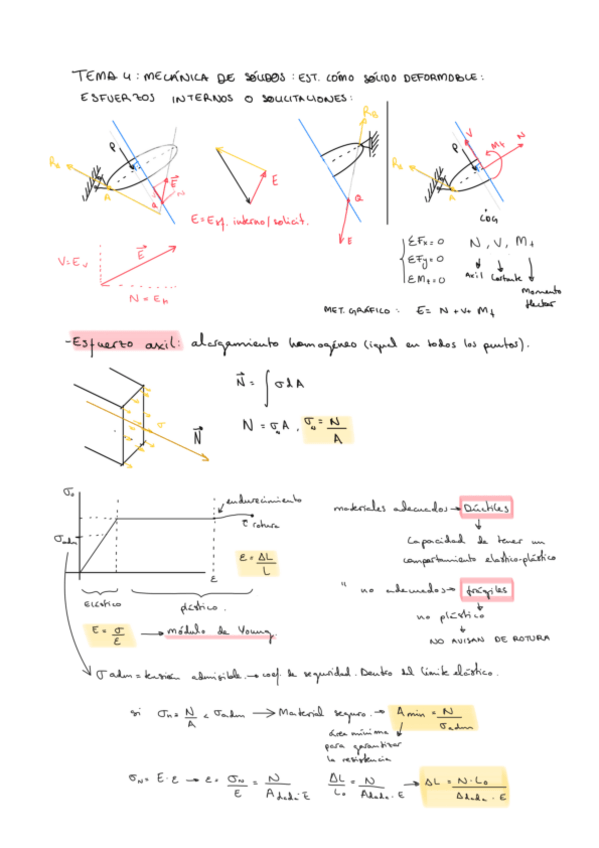 TEMA 4: MECÁNICA DE SÓLIDOS: EST. CÓMO SÓLIDO DEFORMABLE:
ESFUERZOS INTERNOS O SOLICITACIONES:
R_B
P
R_A
A
E
N
Q
E
E = Esf. interno/solicit.
Q
E
V
N
M_f
P
R_A
A
CDG
V = E_v
E
N = E_h
ΣFx = 0
ΣFy = 0
ΣM_f = 0
N, V, M_f
Axil
Cortante
Momento flector
MET. GRÁFICO: E = N + V + M_f
- Esfuerzo axil: alargamiento homogéneo (igual en todos los puntos).
N = ∫ σ dA
N = σ_n A, σ_n = N/A
σ
N
σ_n
σ_adm
endurecimiento
rotura
ε
ε = ΔL/L
elástico
plástico.
E = σ/ε → módulo de Young
materiales adecuados → Dúctiles
Capacidad de tener un
comportamiento elastico-plástico
" no adecuados → frágiles
no plástico
NO AVISAN DE ROTURA
σ adm = tensión admisible. → coef. de seguridad. Dentro del límite elástico.
si σ_n = N/A < σ adm → Material seguro. → A min = N/σ adm
área mínima
para garantizar
la resistencia
σ_N = E · ε → ε = σ_N/E = N/(A dada · E) ΔL/L_0 = N/(A dada · E) → ΔL = N · L_0/(A dada · E)